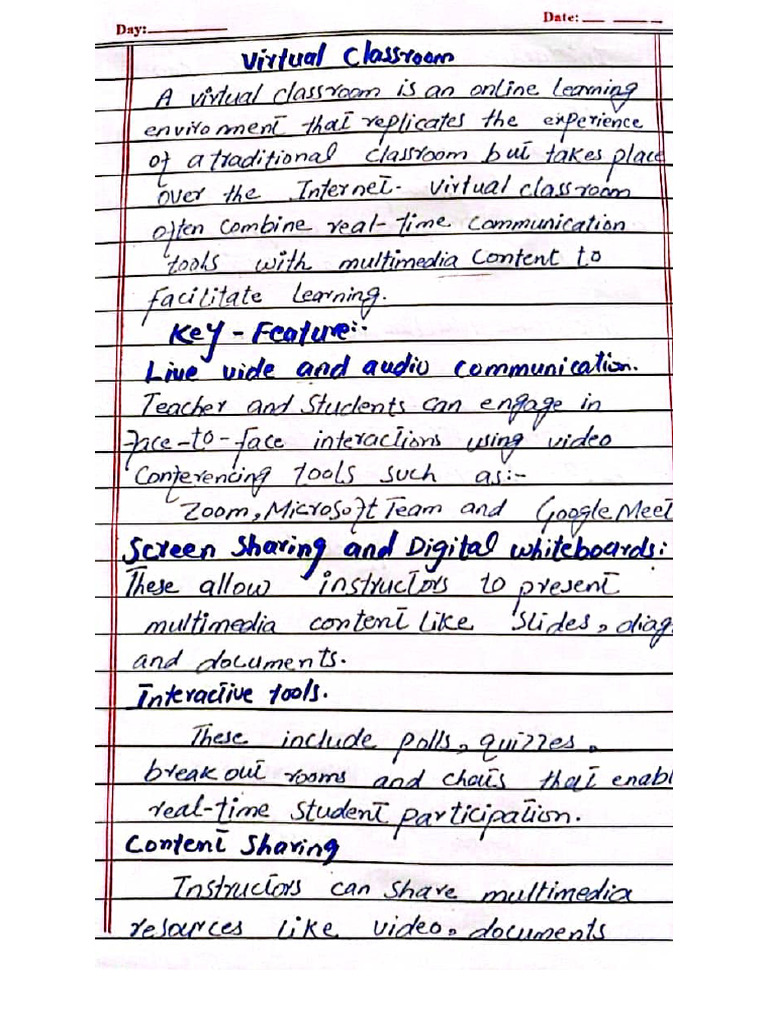 Day:
Date:
Virtual Classroom
A virtual classroom is an online learning
enviroment that replicates the experience
of a traditional classroom but takes place
over the Internet. virtual classroom
often combine real-time communication
tools with multimedia content to
facilitate learning.
Key - Feature:-
Live vide and audio communication.
Teacher and Students can engage in
face-to-face interactions using video
Conferencing tools such as:-
Zoom, Microsoft Team and Google Meet
Screen Sharing and Digital whiteboards:
These allow instructors to present
multimedia content like slides, diag
and documents.
Interactive tools.
These include polls, quizzes,
break out rooms and chats that enabl
real-time student participation.
Content Sharing
Instructors can share multimedia
resources like video, documents